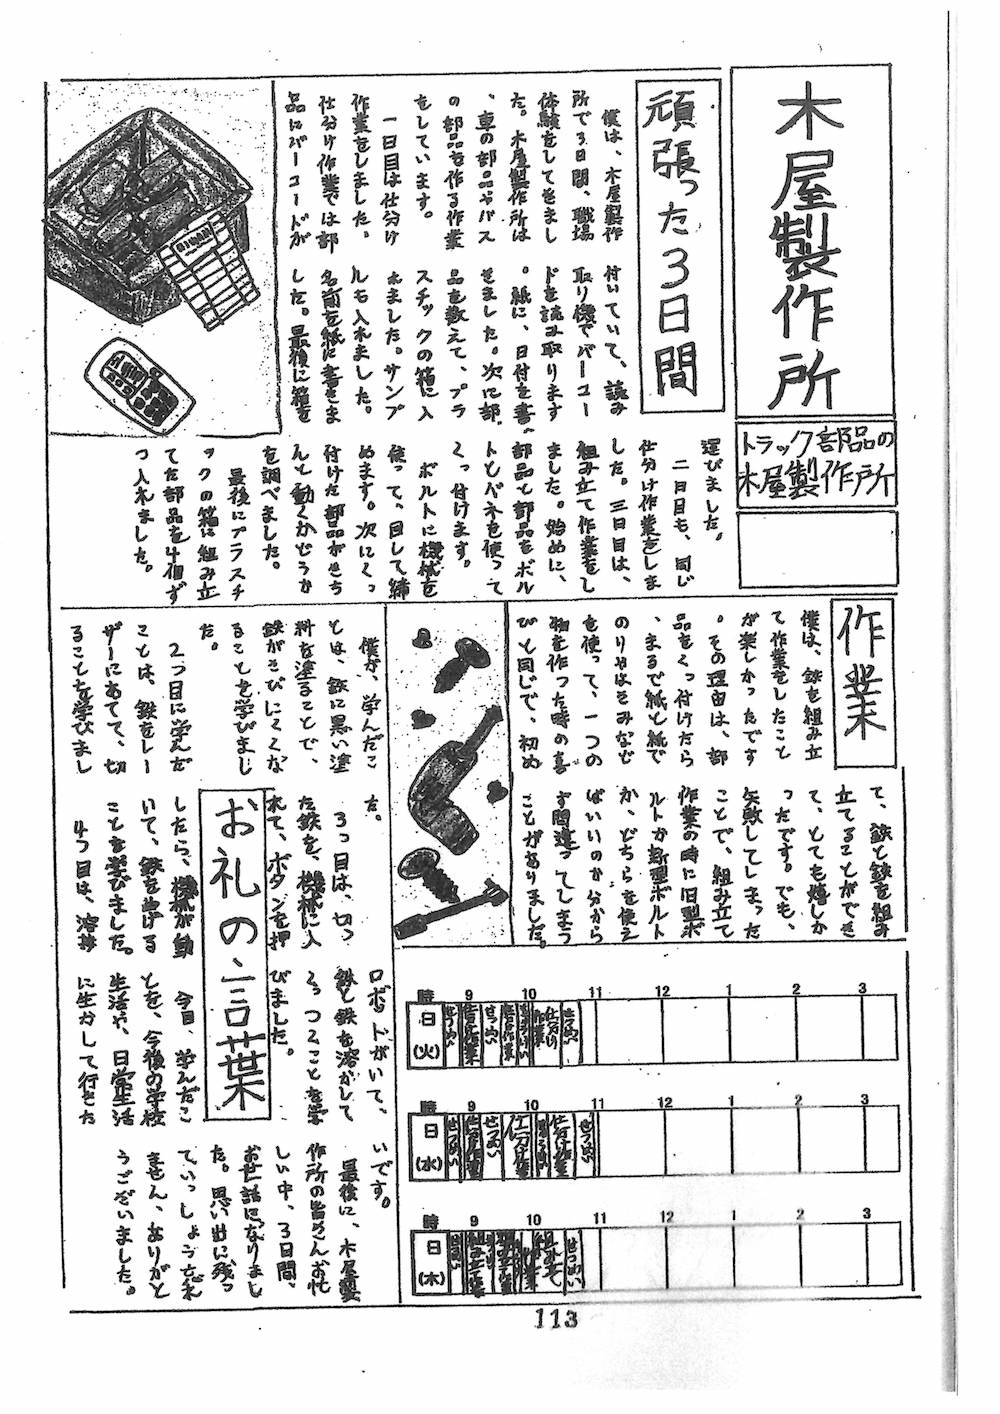 木屋製作所
トラック部品の
木屋製作所
頑張った3日間
僕は、木屋製作
所で3日間、職場
体験をしてきまし
た。木屋製作所は
、車の部品やバス
の部品を作る作業
をしています。
一日目は仕分け
作業をしました。
仕分け作業では部
品にバーコードが
付いていて、読み
取り機でバーコー
ドを読み取ります
。紙に、日付を書
きました。次に部
品を数えて、プラ
スチックの箱に入
れました。サンプ
ルも入れました。
名前を紙に書きま
した。最後に箱を
運びました。
二日目も、同じ
仕分け作業をしま
した。三日目は、
組み立て作業をし
ました。始めに、
部品と部品をボル
トとバネを使って
くっ付けます。
ボルトに機械を
使って、回して締
めます。次にくっ
付けた部品がきち
んと動くかどうか
を調べました。
最後にプラスチ
ックの箱に組み立
てた部品を4個ず
つ入れました。
作業
僕は、鉄を組み立
て作業をしたこと
が楽しかったです
。その理由は、部
品をくっ付けたら
、まるで紙と紙で
のりやはさみなど
を使って、一つの
物を作った時の喜
びと同じで、初め
て、鉄と鉄を組み
立てることができ
て、とても嬉しか
ったです。でも、
失敗してしまった
ことで、組み立て
作業の時に旧型ボ
ルトか新型ボルト
か、どちらを使え
ばいいのか分から
ず間違ってしまう
ことがありました。
僕が、学んだこ
とは、鉄に黒い塗
料を塗ることで、
鉄がさびにくくな
ることを学びまし
た。
2つ目に学んだ
ことは、鉄をレー
ザーにあてて、切
ることを学びまし
た。
3つ目は、切っ
た鉄を、機械に入
れて、ボタンを押
したら、機械が動
いて、鉄を曲げる
ことを学びました。
4つ目は、溶接
ロボットがいて、
鉄と鉄を溶かして
くっつくことを学
びました。
お礼の言葉
今回、学んだこ
とを、今後の学校
生活や、日常生活
に生かして行きた
いです。
最後に、木屋製
作所の皆さんお忙
しい中、3日間、
お世話になりまし
た。思い出に残っ
ていっしょう忘れ
ません、ありがと
うございました。
時 9 10 11 12 1 2 3
日(火)
時 9 10 11 12 1 2 3
日(水)
時 9 10 11 12 1 2 3
日(木)
113